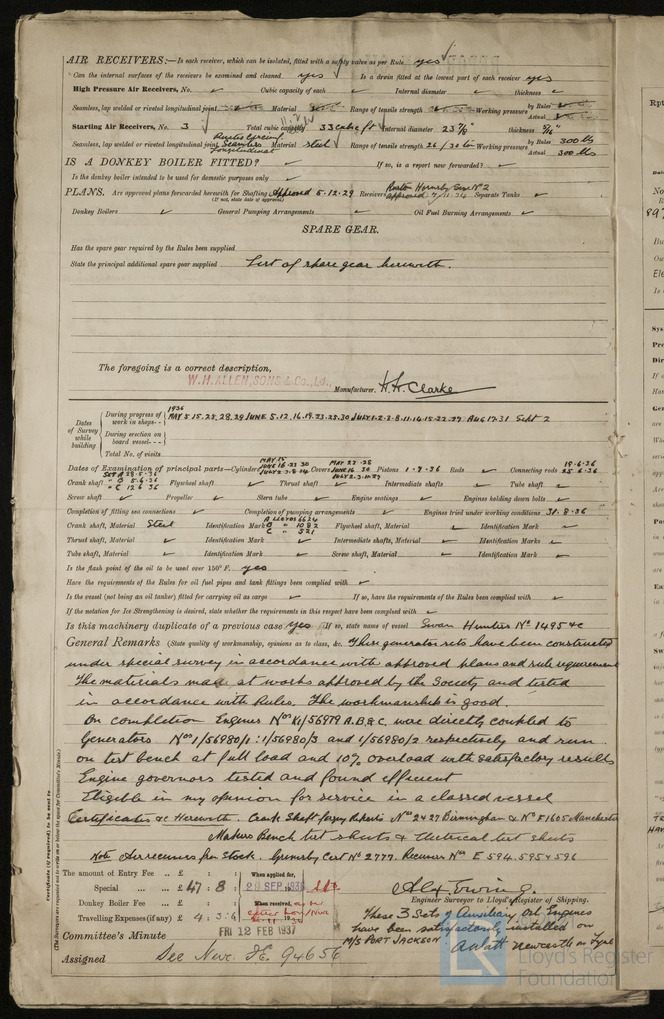 AIR RECEIVERS:—Is each receiver, which can be isolated, fitted with a safety valve as per Rule yes ✓
Can the internal surfaces of the receivers be examined and cleaned yes ✓ Is a drain fitted at the lowest part of each receiver yes
High Pressure Air Receivers, No. ✓ Cubic capacity of each ✓ Internal diameter ✓ thickness ✓
Seamless, lap welded or riveted longitudinal joint Material Range of tensile strength Working pressure by Rules Actual
Starting Air Receivers, No. 3 ✓ Total cubic capacity 33 cubic ft ✓ Internal diameter 23 thickness
Seamless, lap welded or riveted longitudinal joint Seamless Longitudinal Material steel ✓ Range of tensile strength 26/30 tons Working pressure by Rules 300 lbs Actual 300 lbs
IS A DONKEY BOILER FITTED? ✓ If so, is a report now forwarded? ✓
Is the donkey boiler intended to be used for domestic purposes only ✓
PLANS. Are approved plans forwarded herewith for Shafting Approved 5.12.29 Receivers Ruston Hornsby Approved Separate Tanks ✓
(If not, state date of approval)
Donkey Boilers ✓ General Pumping Arrangements ✓ Oil Fuel Burning Arrangements ✓
SPARE GEAR.
Has the spare gear required by the Rules been supplied
State the principal additional spare gear supplied List of spare gear herewith.
The foregoing is a correct description,
W.H. ALLEN, SONS & Co., Ld., Manufacturer. H.H. Clarke
Dates of Survey while building
During progress of work in shops - - 1936 MAY 5.15.25.28.29 JUNE 5.12.16.19.23.25.30 JULY 1.2.3.8.11.14.15.22.27 AUG 17.31 Sept 2
During erection on board vessel - - -
Total No. of visits
Dates of Examination of principal parts—Cylinders MAY 15 JUNE 16.23.30 JULY 2.3.8.14 Covers MAY 22.28 JUNE 16.30 JULY 2.3.11.27 Pistons 1.7.36 Rods ✓ Connecting rods 19.6.36 25.6.36
Crank shaft SET A 28.5.36 " B 5.6.36 " C 12.6.36 Flywheel shaft ✓ Thrust shaft ✓ Intermediate shafts ✓ Tube shaft ✓
Screw shaft ✓ Propeller ✓ Stern tube ✓ Engine seatings ✓ Engines holding down bolts ✓
Completion of fitting sea connections ✓ Completion of pumping arrangements ✓ Engines tried under working conditions 31.8.36
Crank shaft, Material Steel Identification Mark A LLOYDS 6624 B " 1082 C " 521 Flywheel shaft, Material ✓ Identification Mark ✓
Thrust shaft, Material ✓ Identification Mark ✓ Intermediate shafts, Material ✓ Identification Marks ✓
Tube shaft, Material ✓ Identification Mark ✓ Screw shaft, Material ✓ Identification Mark ✓
Is the flash point of the oil to be used over 150° F. yes
Have the requirements of the Rules for oil fuel pipes and tank fittings been complied with ✓
Is the vessel (not being an oil tanker) fitted for carrying oil as cargo ✓ If so, have the requirements of the Rules been complied with ✓
If the notation for Ice Strengthening is desired, state whether the requirements in this respect have been complied with ✓
Is this machinery duplicate of a previous case yes If so, state name of vessel Swan Hunters No 1495 &c
General Remarks (State quality of workmanship, opinions as to class, &c. These generator sets have been constructed
under special survey in accordance with approved plans and rule requirement
The materials made at works approved by the Society and tested
in accordance with Rules. The workmanship is good.
On completion Engines Nos K1/56979 A.B.&C. were directly coupled to
Generators Nos 1/56980/1 : 1/56980/3 and 1/56980/2 respectively and run
on test bench at full load and 10% overload with satisfactory results
Engine governors tested and found efficient
Eligible in my opinion for service in a classed vessel
Certificates &c Herewith. Crank Shaft forging Reports No 2427 Birmingham & No F1605 Manchester
Makers Bench test sheets & Electrical test sheets
Note Air receivers from Stock. Grimsby Cert No 2777. Receiver Nos E 594.595 & 596
The amount of Entry Fee .. £ : :
Special ... .. £ 47 : 8 :
Donkey Boiler Fee ... £ : :
Travelling Expenses (if any) £ 4 : 3 : 6
When applied for, 28 SEP 1936
When received,
Alex Ewing.
Engineer Surveyor to Lloyd's Register of Shipping.
These 3 Sets of Auxiliary Oil Engines
have been satisfactorily installed on
M/S PORT JACKSON. A Watt Newcastle on Tyne
Committee's Minute FRI 12 FEB 1937
Assigned See Nwc. F.E. 94656
Certificate (if required) to be sent to
(The Surveyors are requested not to write on or below the space for Committee's Minute.)
Lloyd's Register
Foundation